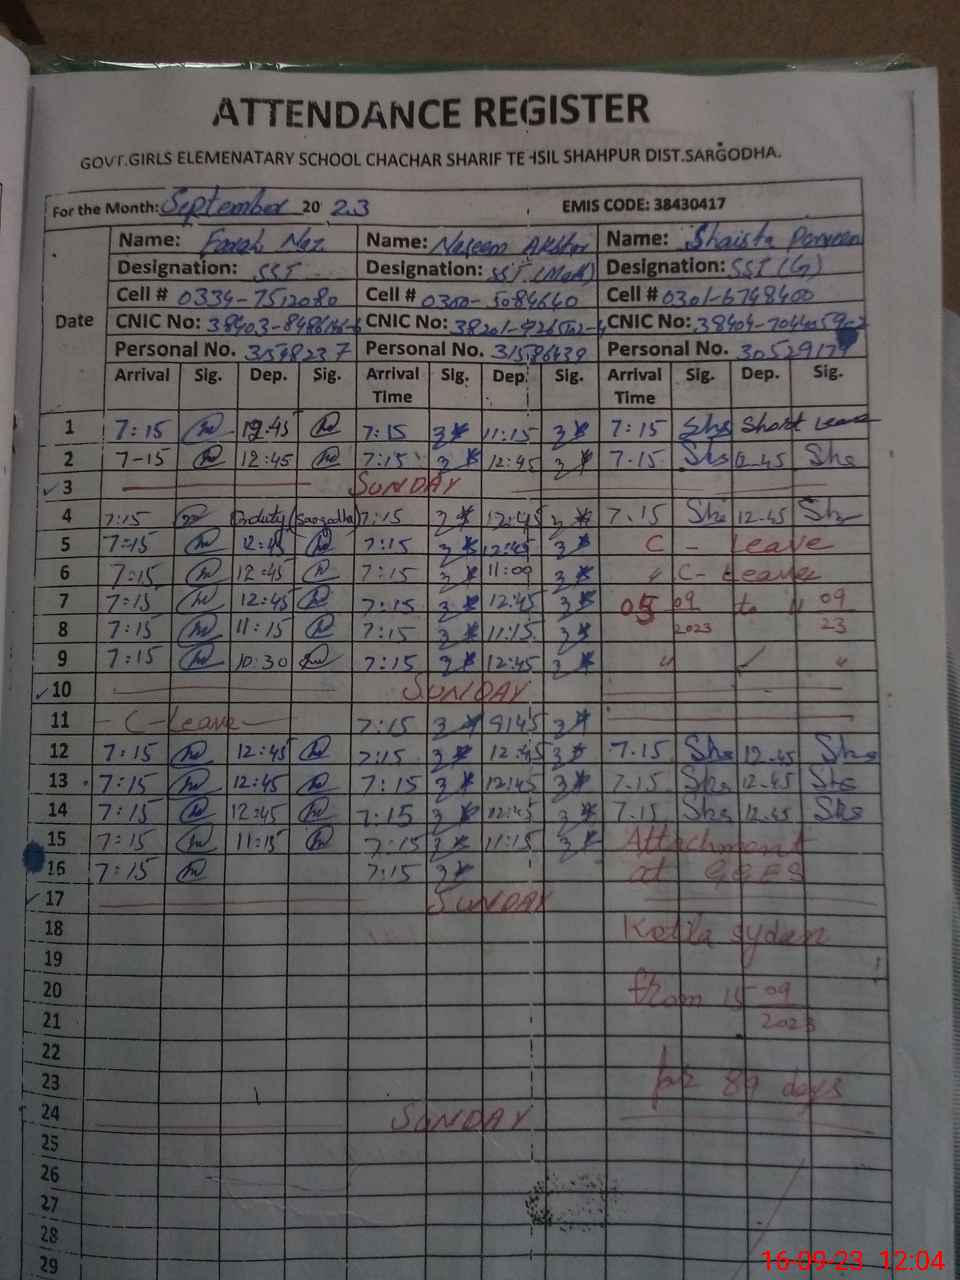 ATTENDANCE REGISTER
GOVT.GIRLS ELEMENATARY SCHOOL CHACHAR SHARIF TEHSIL SHAHPUR DIST.SARGODHA.
For the Month: September 20 23 EMIS CODE: 38430417
Name: Farah Naz Name: Naseem Akhtar Name: Shaista Parveen
Designation: SST Designation: SST (Math) Designation: SST (G)
Cell # 0334-7512080 Cell # 0300-5084640 Cell # 0301-6748400
Date CNIC No: CNIC No: CNIC No:
Personal No. Personal No. 31586439 Personal No. 30529179
Arrival Sig. Dep. Sig. Arrival Time Sig. Dep. Sig. Arrival Time Sig. Dep. Sig.
1 7:15 12:45 7:15 11:15 7:15 Shs Short Leave
2 7-15 12:45 7:15 12:45 7.15 Shs 12.45 Shs
3 SUNDAY
4 7:15 Onduty (Sargodha) 7:15 12:45 7.15 Shs 12.45 Shs
5 7:15 12:45 7:15 12:45 C - Leave
6 7:15 12:45 7:15 11:00 " C- Leave
7 7:15 12:45 7:15 12:45 05 09 2023 to 11 09 23
8 7:15 11:15 7:15 11:15
9 7:15 10:30 7:15 12:45 " "
10 SUNDAY
11 C-Leave 7:15 9:45
12 7:15 12:45 7:15 12:45 7.15 Shs 12.45 Shs
13 7:15 12:45 7:15 12:45 7.15 Shs 12.45 Shs
14 7:15 12:45 7:15 12:45 7.15 Shs 12.45 Shs
15 7:15 11:15 7:15 11:15 Attachment
16 7:15 7:15 at GGES
17 SUNDAY
18 Kotla sydan
19
20 from 15 09
21 2023
22
23 for 89 days
24 SUNDAY
25
26
27
28
29
16-09-23 12:04